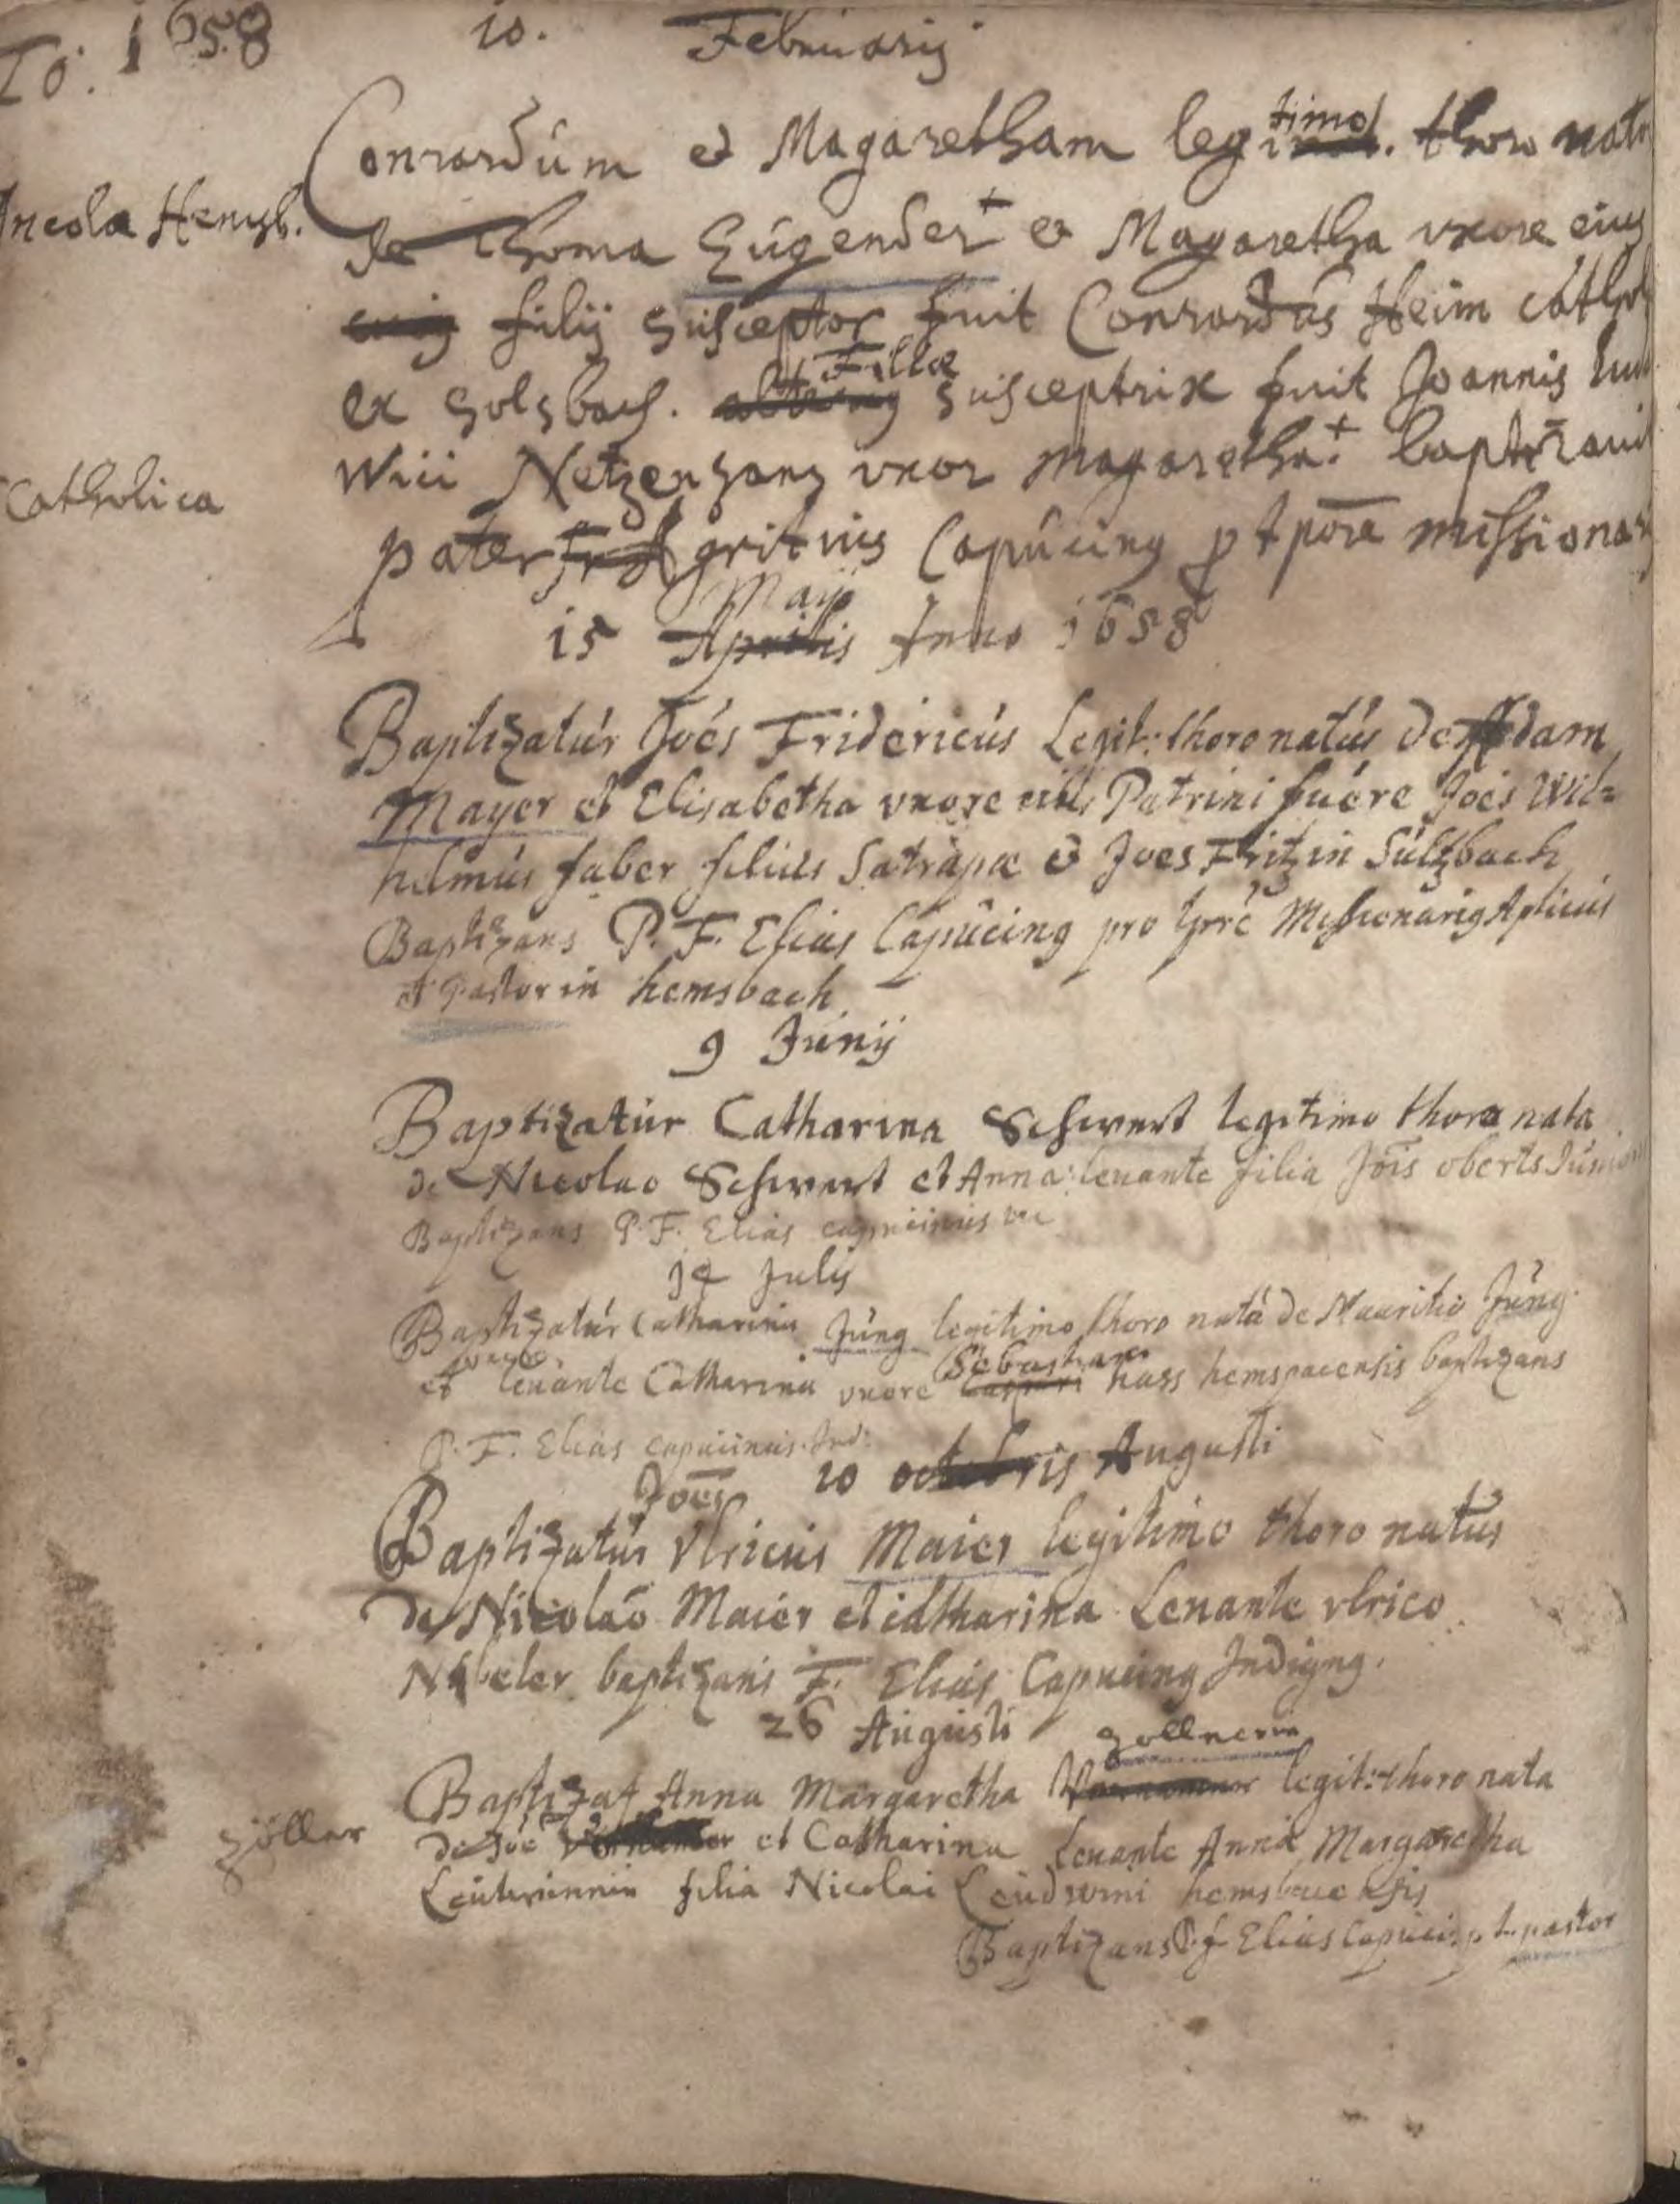 Ao. 1658 10. Februarij
Conrardum et Magaretham legitimo thoro nato
Incola Hemsb.
de Thoma Gugender et Magaretha uxore eius
filij susceptor fuit Conrardus Heim Cathol
ex Solsbach. Filiæ susceptrix fuit Joannis
Netzenhanz uxor Magaretha baptizavit
Catholica
pater gritius Capucinus p tpore missionar
15 Maij Anno 1658
Baptizatur Joes Fridericus Legit: thoro natus de Adam
Mayer et Elisabetha uxore eius Patrini fuere Joes Wil=
helmus faber filius Satrapæ et Joes Fritz in Sultzbach
Baptizans P. F. Elias Capucinus pro tpre Missionarius Aplicus
et Pastor in hemsbach
9 Junij
Baptizatur Catharina Schwert legitimo thoro nata
de Nicolao Schwert et Anna: levante filia Jois oberts Junioris
Baptizans P. F. Elias capucinus
14 Julij
Baptizatur Catharina Jung legitimo thoro nata de Mauritio Jung
et levante Catharina uxore Sebastiani hass hemspacensis baptizans
P. F. Elias capucinus Ind:
20 octobris Augusti
Baptizatus Joes Ulricus Maier legitimo thoro natus
de Nicolao Maier et Catharina Levante ulrico
Nibeler baptizans F. Elias Capucinus Indignus.
26 Augusti
Baptizat Anna Margaretha Zollnerin legit: thoro nata
Zöller
de Joe et Catharina Levante Anna Margaretha
filia Nicolai hemsbacensis
Baptizans P. f Elias Capuci: p. t. pastor